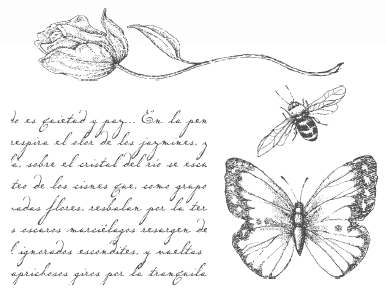 do es quietud y paz... En la pen
respira el olor de los jazmines, y
la, sobre el cristal del río se escu
teo de los cisnes que, como grupo
vadas flores, resbalan por la ter
s oscuros murciélagos resurgen de
ignorados escondites, y vueltas
aprichosos giros por la tranquila